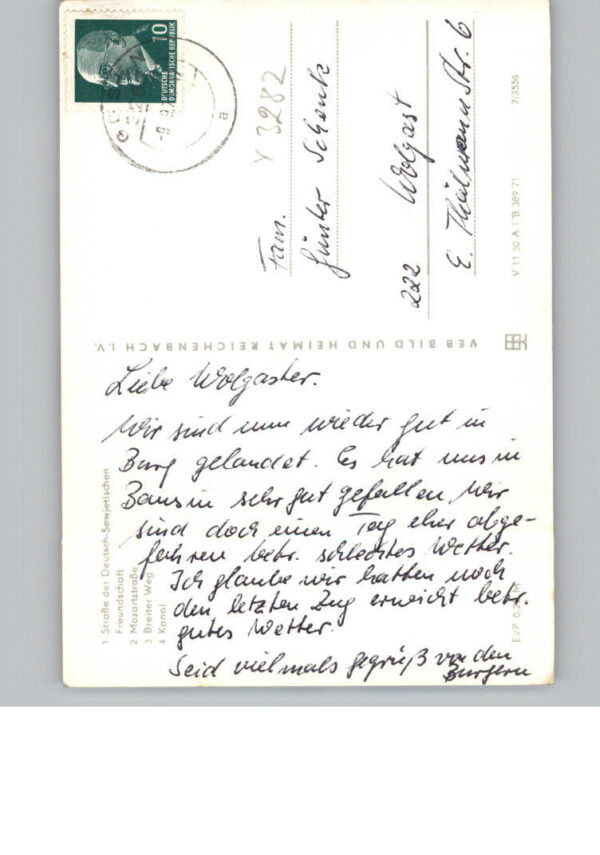 10
DEUTSCHE
DEMOKRATISCHE REPUBLIK
a
Y 3282
Fam.
Günter Schenk
222 Wolgast
E. Thälmannstr. 6
V 11 50 A 1/B 389/71 7/3556
VEB BILD UND HEIMAT REICHENBACH I.V.
Liebe Wolgaster.
Wir sind nun wieder gut in
Burg gelandet. Es hat uns in
Bansin sehr gut gefallen, wir
sind doch einen Tag eher abge-
fahren betr. schlechtes Wetter.
Ich glaube wir hatten noch
den letzten Zug erwischt betr.
gutes Wetter.
Seid vielmals gegrüß von den
Burgern
1 Straße der Deutsch-Sowjetischen
Freundschaft
2 Mozartstraße
3 Breiter Weg
4 Kanal
EVP 0,20